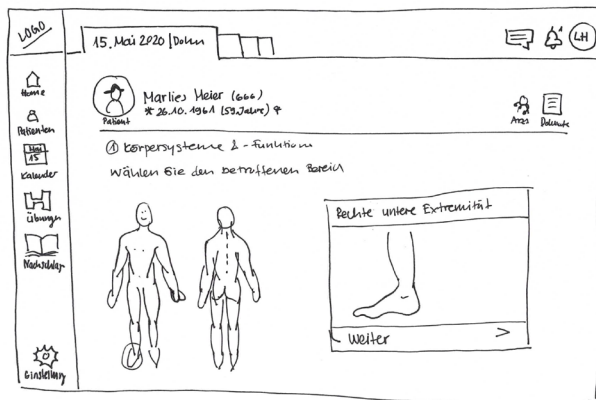 LOGO
15. Mai 2020 | Dohn
LH
Home
Patienten
Mai
15
Kalender
Übungen
Nachschlag
Einstellung
Patient
Marlies Meier (666)
* 26.10.1961 (59 Jahre) ♀
Dokumente
① Körpersysteme & -Funktion
Wählen Sie den betroffenen Bereich
Rechte untere Extremität
Weiter >